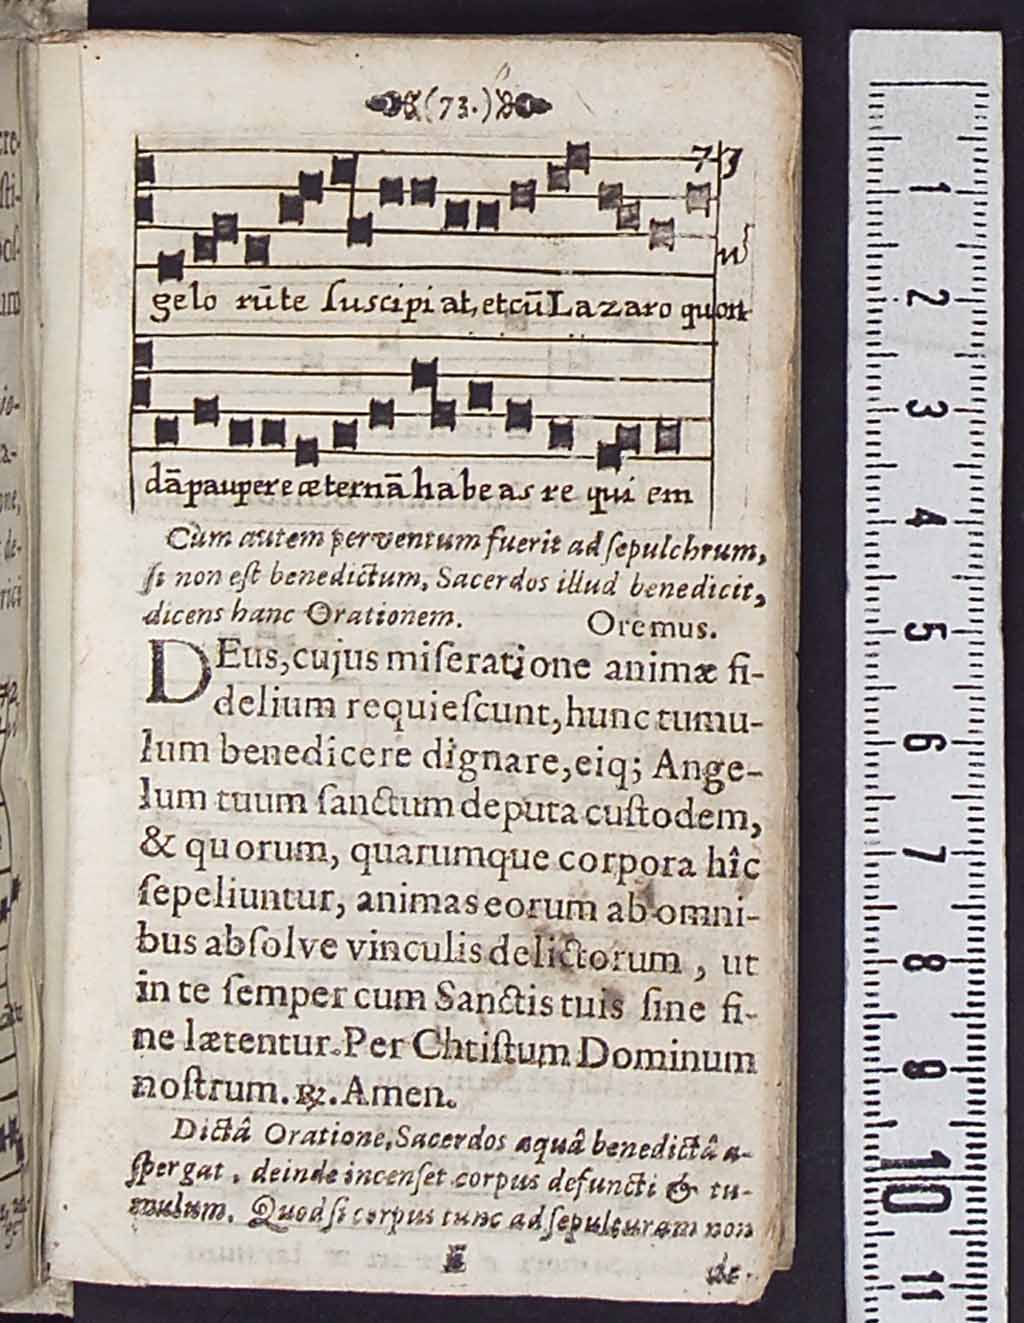 (73.)
73
gelo rūte ſuscipi at, et cū Lazaro quon
dā paupere æternā habeas re qui em
Cùm autem perventum fuerit ad ſepulchrum,
ſi non eſt benedictum, Sacerdos illud benedicit,
dicens hanc Orationem. Oremus.
DEus, cujus miſeratione animæ fi-
delium requieſcunt, hunc tumu-
lum benedicere dignare, eiq; Ange-
lum tuum ſanctum deputa cuſtodem,
& quorum, quarumque corpora hîc
ſepeliuntur, animas eorum ab omni-
bus abſolve vinculis delictorum, ut
in te ſemper cum Sanctis tuis ſine fi-
ne lætentur. Per Chtiſtum Dominum
noſtrum. ℟. Amen.
Dictâ Oratione, Sacerdos aquâ benedictâ a-
ſpergat, deinde incenſet corpus defuncti & tu-
mulum. Quod ſi corpus tunc ad ſepulturam non
E
de-
1
2
3
4
5
6
7
8
9
10
11